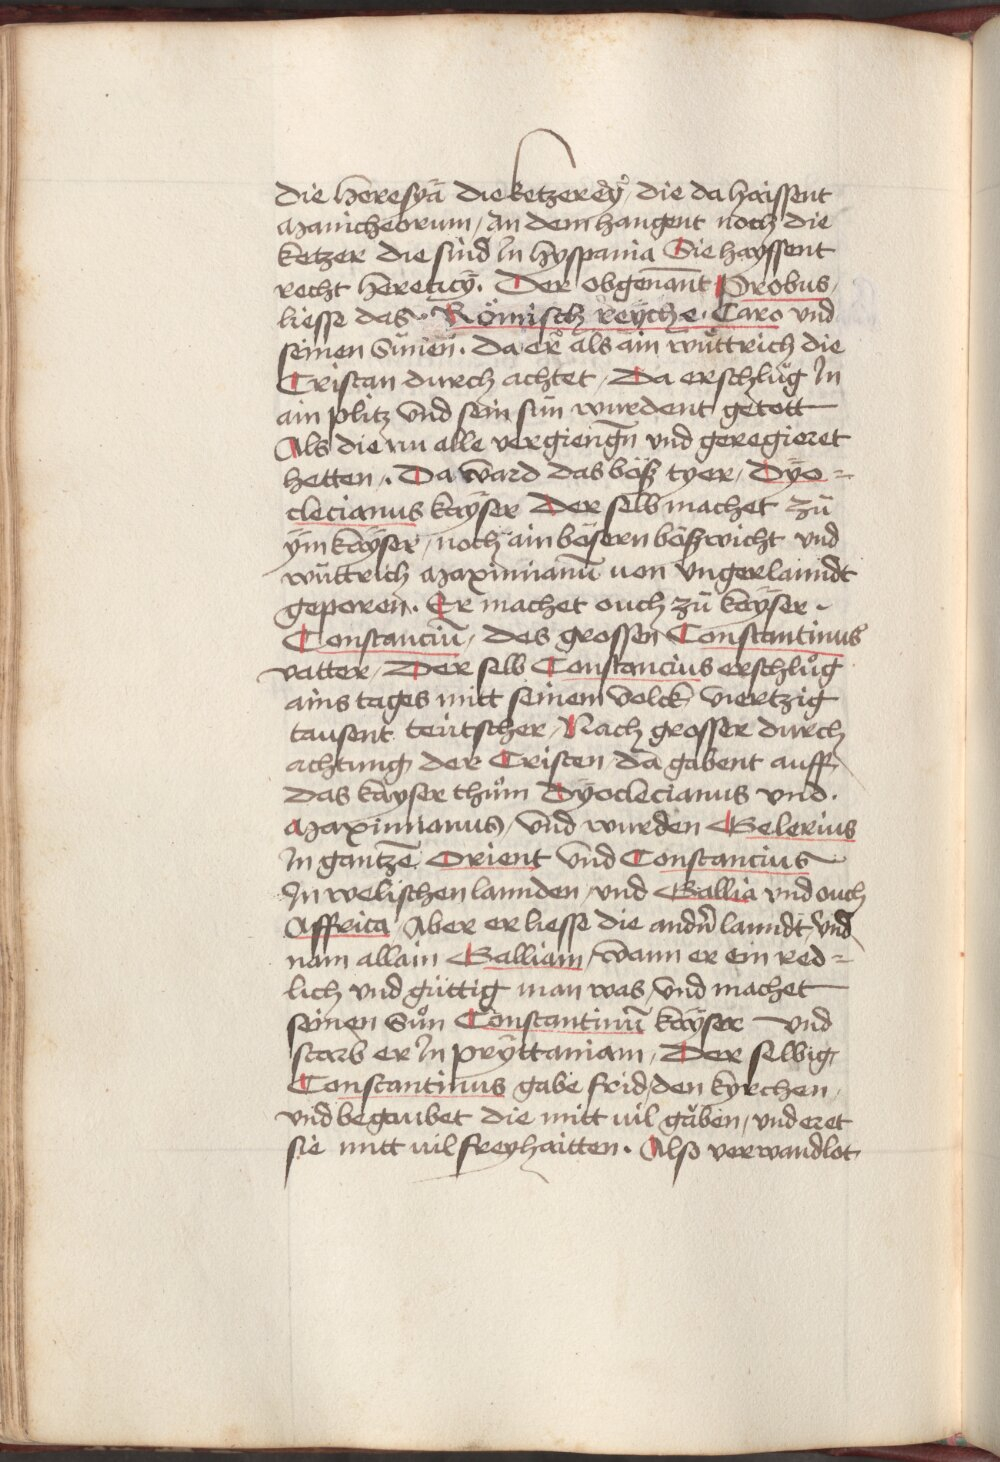 die heresyā die ketzereÿ, die da haissent
Manicheorum / An dem hangent noch die
ketzer die sind In hyspania Sie hayssent
recht hereticÿ. Der obgenant̄ Probus,
liesse das Römisch reÿche. Caro und
seinen Sünen. da er als ain wu̇ttrich die
Cristan durch achtet / Da erschlu̇g In
ain plitz vnd sein sün wurdent getött
Als die nu alle vergiengn̄ vnd geregieret
hetten. Da ward das böß tyer / Dÿo=
clecianus kaÿser Der selb machet zů
ÿm kaÿser / noch ain bösern bößwicht vnd
wüttrich Maximianū von Vngerlanndt
geporen. Er machet ouch zů kaÿser.
Constanciū / des grossen Constantinus
vatter / Der selb Constancius erschlůg
ains tages mitt seinem volck viertzig
tausent teütscher / Nach grosser durch
achtung der Cristen / da gabent auff
das kaÿserthům Dÿoclecianus vnd.
Maximianus / vnd wurden Gelerius
In gantzē Orient vnd Constancius
In welischen lannden / vnd Gallia vnd ouch
Affrica Aber er liesse die andn̄ lanndt / vnd
nam allain Galliam / wann er ein red=
lich vnd güttig man was / vnd machet
seinen Sůn Constantinū kaÿser vnd
starb er In prÿttaniam / Der selbig
Constantinus gabe frid / den kyrchen /
vnd begaubet die mitt vil gäben / vnd eret
sie mitt vil freyhaitten. Also verwandlot